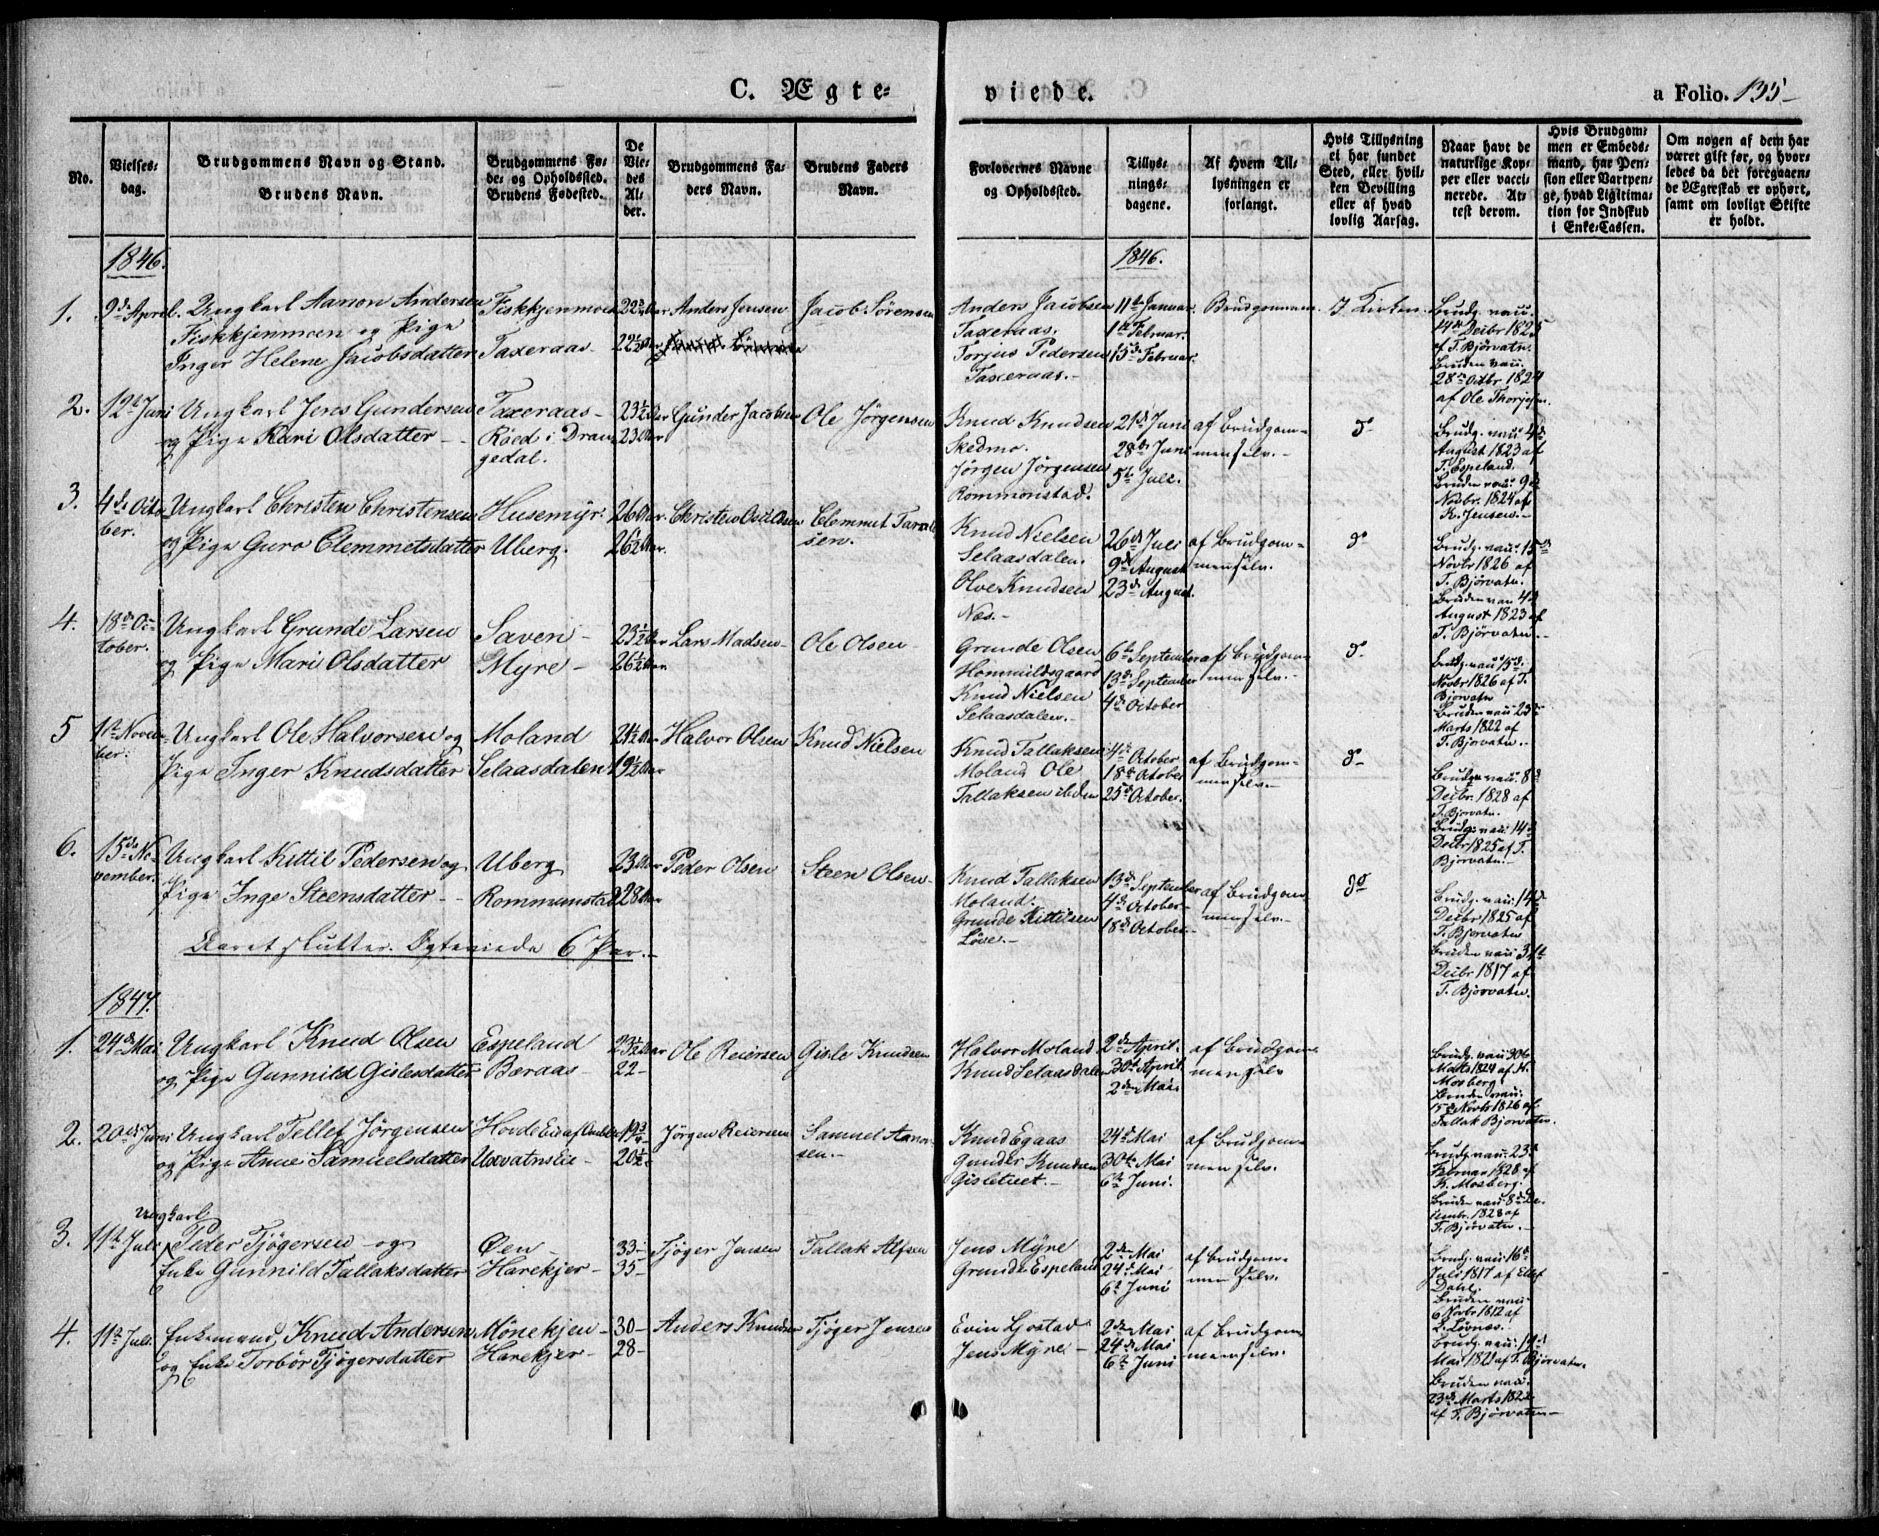 C. Ægte-
viede.
a Folio. 135
No.
Vielses-
dag.
Brudgommens Navn og Stand.
Brudens Navn.
Brudgommens Fø-
de- og Opholdssted.
Brudens Fødested.
De
Vie-
des
Al-
der.
Brudgommens Fa-
ders Navn.
Brudens Faders
Navn.
Forlovernes Navne
og Opholdssted.
Tillys-
nings-
dagene.
Af Hvem Til-
lysningen er
forlangt.
Hvis Tillysning
ei har fundet
Sted, eller hvil-
ken Bevilling
eller af hvad
lovlig Aarsag.
Naar havt de
naturlige Kop-
per eller vacci-
nerede. At-
test derom.
Hvis Brudgom-
men er Embeds-
mand, har Pen-
sion eller Vartpen-
ge, hvad Ligitima-
tion for Indskud
i Enke-Cassen.
Om nogen af dem har
været gift før, og hvor-
ledes da det foregaaen-
de Ægteskab er ophørt,
samt om lovligt Skifte
er holdt.
1846.
1846.
1.
9de April.
Ungkarl Aanon Andersen
Fiskkjenmoen og Pige
Inger Helene Jacobsdatter
Fiskkjenmoen
Taxeraas
22
22½ Aar
Anders Jensen
Jacob Sørensen
Anders Jacobsen
Taxeraas.
Torjus Pedersen
Taxeraas.
11te Januar.
1te Februar.
15de Februar.
Brudgommen.
I Kirken.
Brudg. vau.
14de Decbr 1825
af T. Bjorvatn.
Bruden vau.
28de Octbr 1824
af Ole Thorjesen.
2.
12te Juni
Ungkarl Jens Gundersen
og Pige Kari Olsdatter
Taxeraas
Røed i Dran-
gedal.
23½ Aar
23 Aar
Gunder Jacobsen
Ole Jørgensen
Knud Knudsen
Skedmo.
Jørgen Jørgensen
Rommonstad.
21de Juni
28de Juni
5te Juli.
af Brudgom-
men selv.
do
Brudg. vau. 4de
August 1823 af
T. Espeland.
Bruden vau. 9de
Novbr. 1824 af
K. Jensen.
3.
4de Octo-
ber.
Ungkarl Christen Christensen
og Pige Guro Clemmetsdatter
Husemyr.
Uberg.
26 Aar
26½ Aar.
Clemmet Taral-
sen.
Knud Nielsen
Selaasdalen.
Olve Knudsen
Næs.
26de Juli
9de August
23de August.
af Brudgom-
men selv.
do
Brudg. vau. 15de
Novbr 1826 af
T. Bjorvatn.
Bruden vau 4de
August 1823 af
T. Bjorvatn.
4.
18de Oc-
tober.
Ungkarl Grunde Larsen
og Pige Mari Olsdatter
Saveri
Myre
23½ Aar
26½ Aar
Lars Madsen
Ole Olsen
Grunde Olsen
Knud Nielsen
Selaasdalen.
6te September
13de September
4de October
af Brudgom-
men selv.
do
Brudg. vau. 15de
Novbr 1826 af T.
Bjorvatn
Bruden vau. 25de
Marts 1822 af
T. Bjorvatn.
5
1te Novem-
ber.
Ungkarl Ole Halvorsen og
Pige Inger Knudsdatter
Moland
Selaasdalen
21½ Aar
19½ Aar
Halvor Olsen
Knud Nielsen
Knud Tallaksen
Moland Ole
Tallaksen ibiden
4de October
18de October
25de October.
af Brudgom-
men selv.
do
Brudg. vau. 8de
Decbr. 1828 af
T. Bjorvatn.
Brudg. vau. 14de
Decbr 1825 af T.
Bjorvatn.
6.
15de No-
vember.
Ungkarl Kittil Pedersen og
Pige Inge Steensdatter
Uberg
Rommunstad
23 Aar
28 Aar
Peder Olsen
Steen Olsen
Knud Tallaksen
Moland.
Grunde Kittilsen
Løve.
13de September
4de October
18de October.
af Brudgom-
men selv.
do
Brudg. vau. 14de
Decbr 1825 af
T. Bjorvatn
Bruden vau. 31te
Decbr 1817 af
T. Bjorvatn.
Aaret slutter. Egteviede 6 Par.
1847.
1.
24de Mai
Ungkarl Knud Olsen
og Pige Gunnild Gislesdatter
Espeland
Bæraas
23½ Aar
22
Ole Reiersen
Gisle Knudsen
Halvor Moland
Knud Selaasdalen
2den April.
30te April.
2den Mai
af Brudgom-
men selv
Brudg. vau. 30te
Marts 1824 af K.
Mosberg.
Bruden vau.
15de Novbr 1826 af
Tallak Bjorvatn.
2.
20de Juni
Ungkarl Tellef Jørgensen
og Pige Anne Samuelsdatter
Uxvatnseie
19¾
20½
Jørgen Reiersen
Samuel Aanon-
sen.
Knud Egaas
Gunder Knudsen
Gisletuet.
24de Mai
30te Mai
6te Juni.
af Brudgom-
men selv.
Brudg. vau. 23de
Februar 1828 af
K. Mosberg.
Bruden vau. 8de De-
cembr. 1828 af
T. Bjorvatn.
3.
11te Juli
Ungkarl
Peder Tjøgersen og
Enke Gunnild Tallaksdatter
Øen
Harekjer
33
35
Tjøger Jensen
Tallak Alfsen
Jens Myre
Grunde Espeland
2den Mai
24de Mai
6te Juni
af Brudgom-
men selv.
Brudg. vau. 16de
Juli 1817 af Ellef
Dahl.
Bruden vau.
6 Novbr 1812 af
L. Løvnæs.
4.
11te Juli.
Enkemand, Knud Andersen
og Enke Torbør Tjøgersdatter
Mønekjen
Harekjer
30
28
Anders Knudsen
Tjøger Jensen
Evin Ljostad
Jens Myre
2den Mai
24de Mai
6te Juni
af Brudgom-
men selv.
Brudg. vau. 19de
Mai 1821 af T. Bjorvatn.
Bruden vau.
23de Marts 1822
af T. Bjorvatn